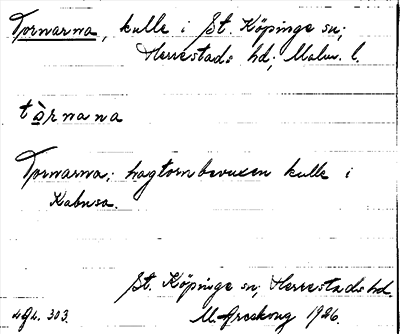 Tornarna, kulle i St. Köpinge sn;
Herrestads hd; Malm. l.
tòrnana
Tornarna: hagtornbevuxen kulle i
Kabusa.
St. Köpinge sn, Herrestads hd.
494. 303. M. Areskoug 1926